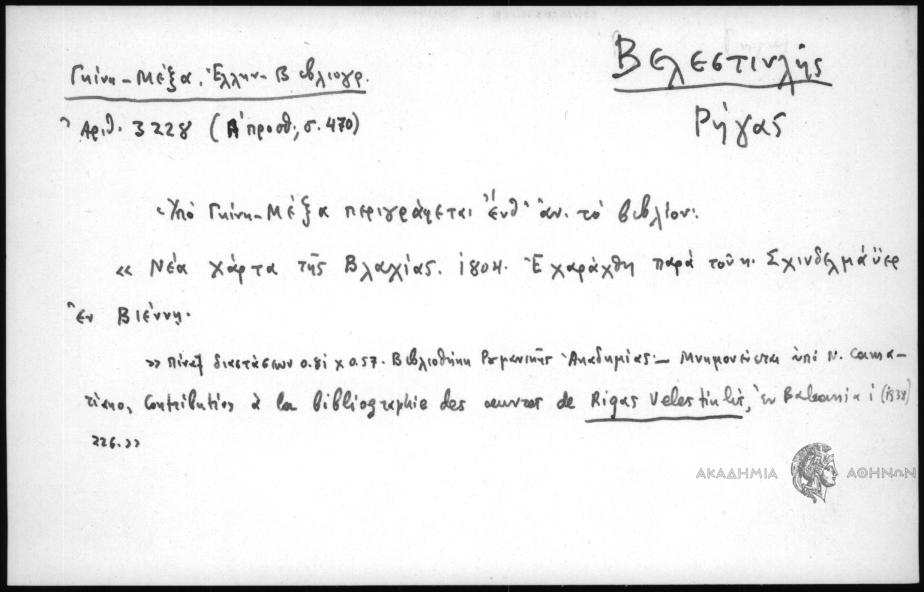 Βελεστινλής
Ρήγας
Γκίνη-Μέξα. Ἑλλην-Βιβλιογρ.
Ἀριθ. 3228 (Α' προσθ., σ. 470)
Ὑπό Γκίνη-Μέξα περιγράφεται ἔνθ' ἀν. τό βιβλίον:
« Νέα χάρτα τῆς Βλαχίας. 1804. Ἐχαράχθη παρά τοῦ κ. Σχινδελμάϋερ
ἐν Βιέννῃ.
» Πίναξ διαστάσεων 0.81 χ 0.57. Βιβλιοθήκη Ρουμανικῆς Ἀκαδημίας — Μνημονεύεται ὑπό N. Cama-
riano, Contribution à la bibliographie des œuvres de Rigas Velestinlis, ἐν Balcania 1 (1938)
226.»
ΑΚΑΔΗΜΙΑ ΑΘΗΝΩΝ